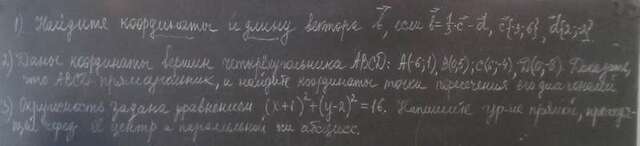 1) Найдите координаты и длину вектора b, если b=⅓c-d, c{-3;6}, d{2;-2}
2) Даны координаты вершин четырёхугольника ABCD: A(-6;1), B(0;5), C(6;-4), D(0;-8). Доказать,
что ABCD прямоугольник, и найдите координаты точки пересечения его диагоналей
3) Окружность задана уравнением (x+1)²+(y-2)²=16. Напишите ур-ие прямой, проходя-
щей через её центр и параллельной оси абсцисс.